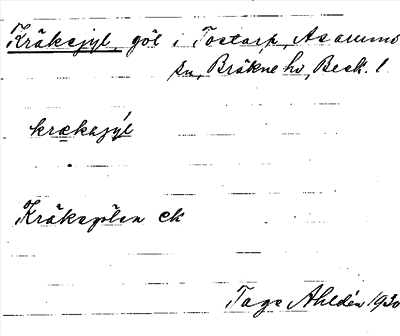 Kråksjyl, göl i Tostarp, Asarums
sn, Bräkne hd, Bleck. l
kræksjýl
Kråksgölen ek
Tage Ahldén 1930